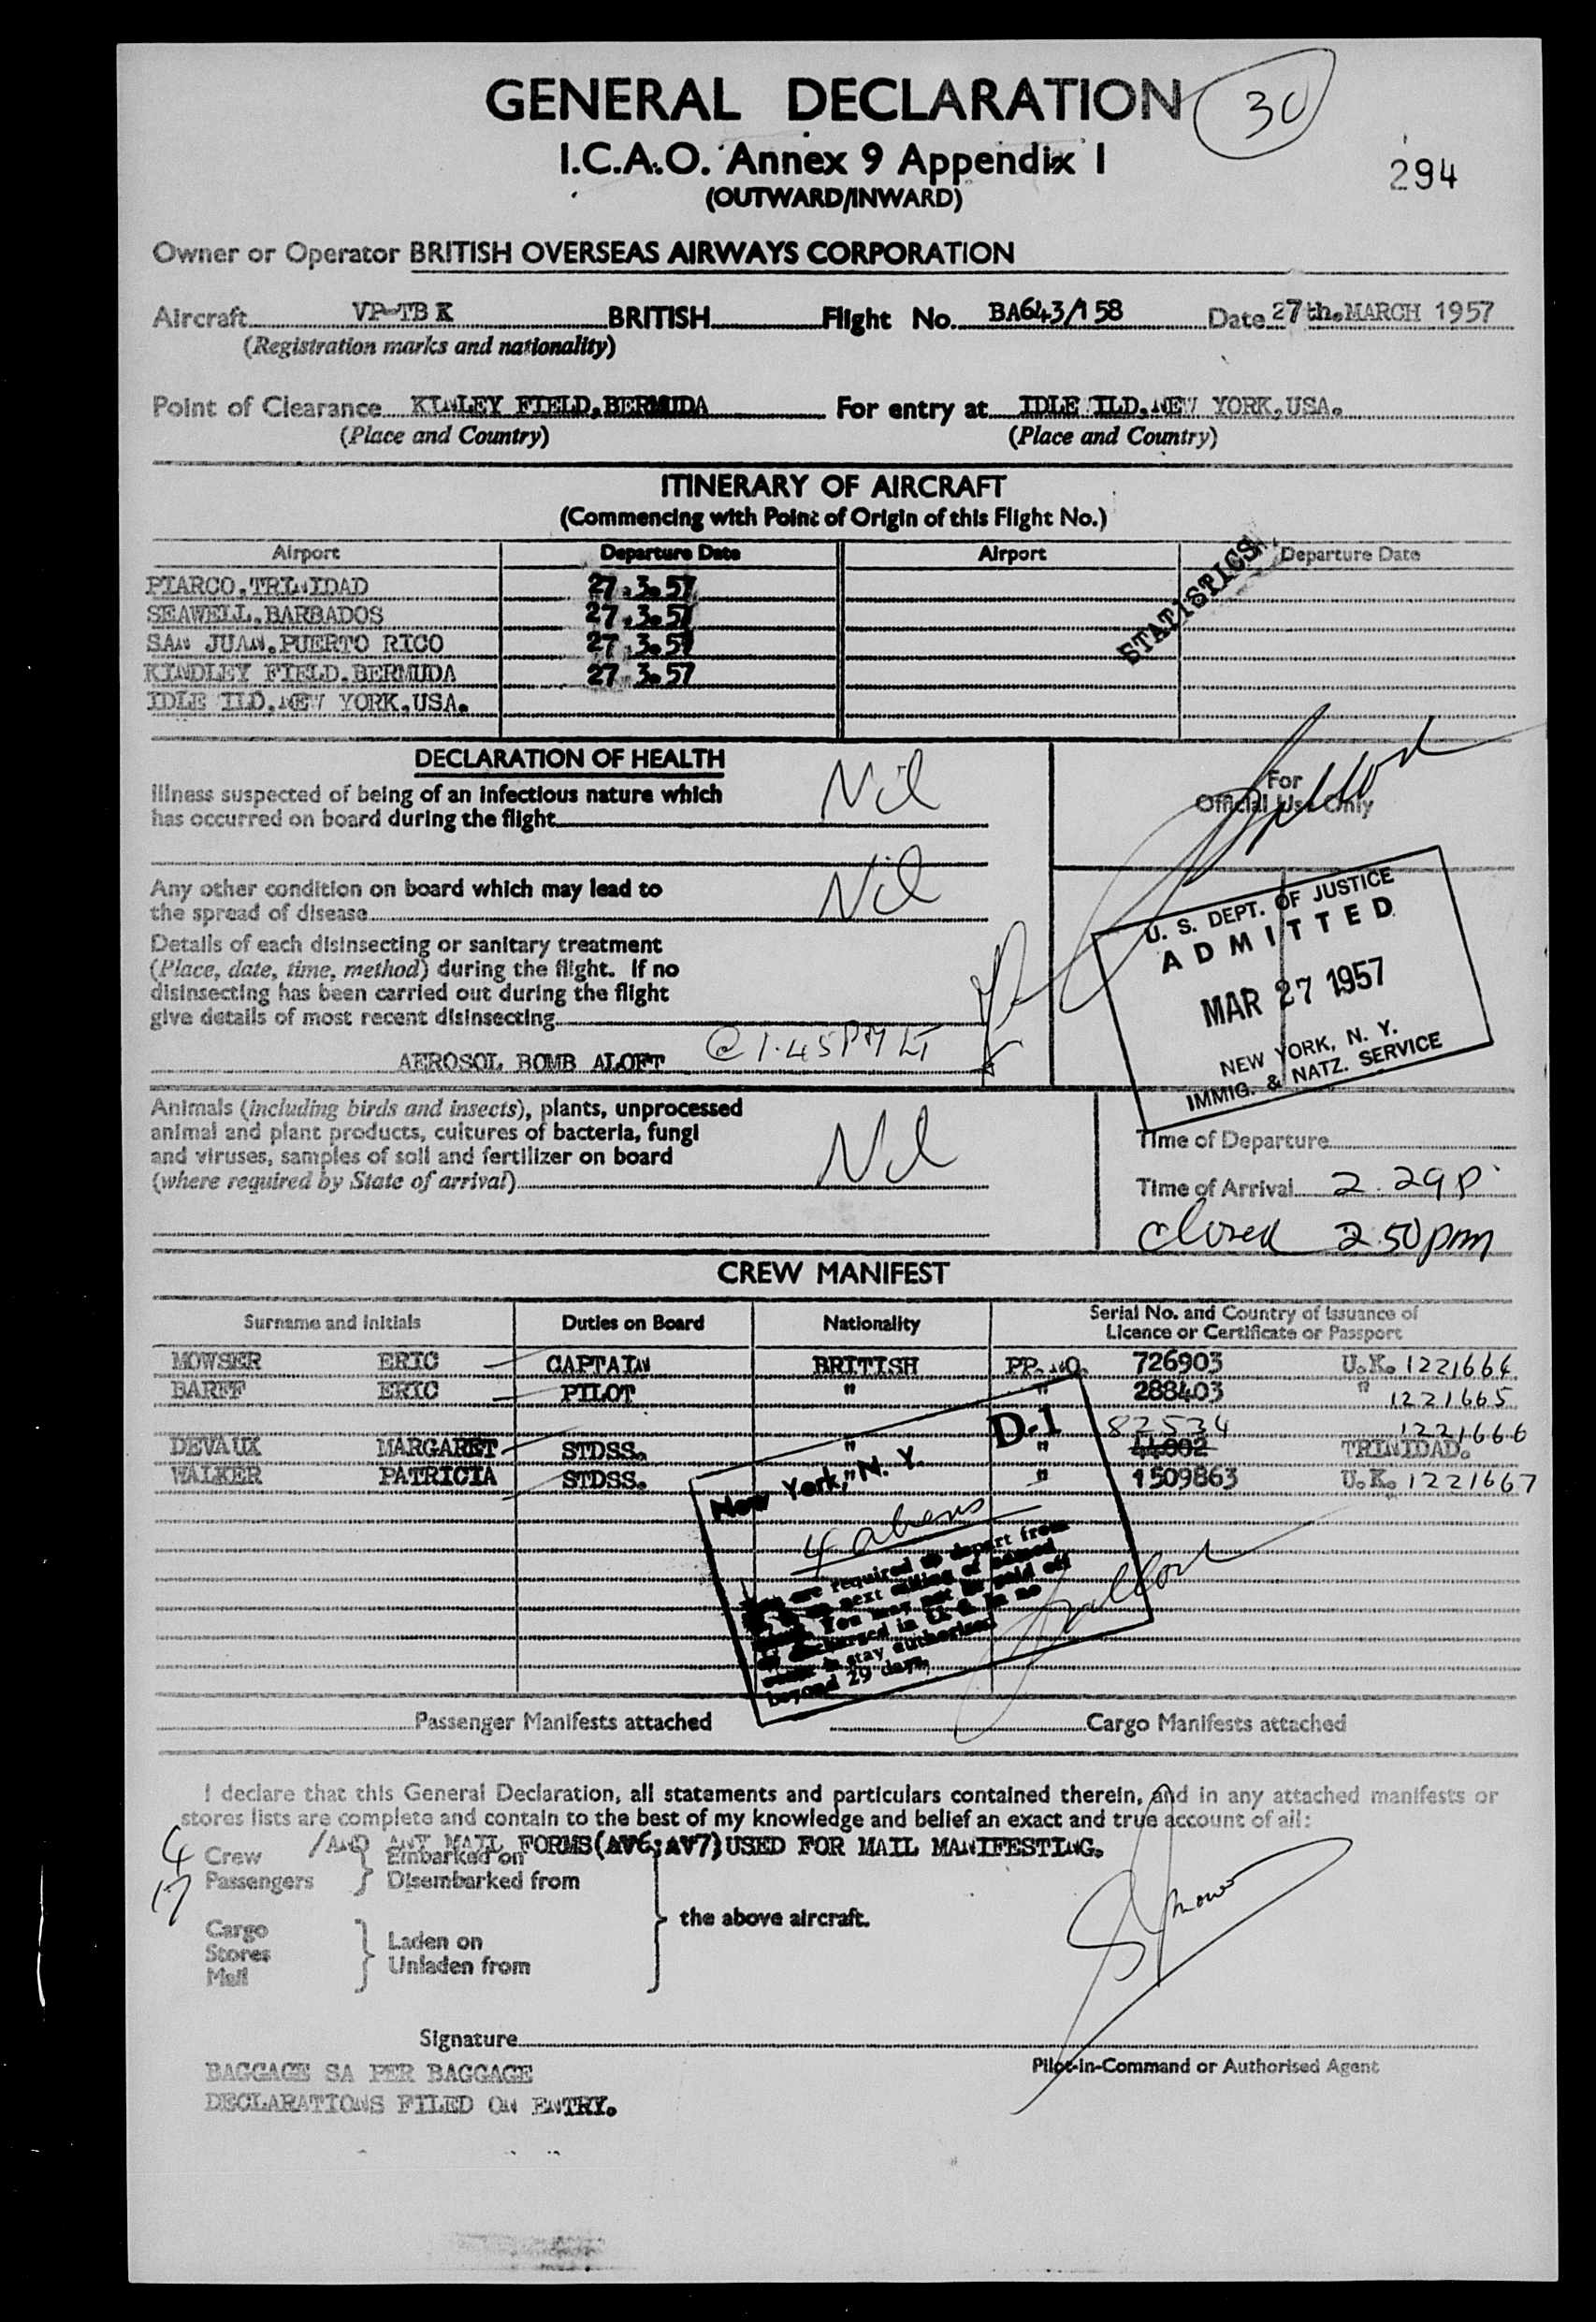 GENERAL DECLARATION
30
I.C.A.O. Annex 9 Appendix I
294
(OUTWARD/INWARD)
Owner or Operator BRITISH OVERSEAS AIRWAYS CORPORATION
Aircraft VP-TBK BRITISH Flight No. BA643/158 Date 27th.MARCH 1957
(Registration marks and nationality)
Point of Clearance KINLEY FIELD.BERMUDA For entry at IDLE ILD.NEW YORK,USA.
(Place and Country) (Place and Country)
ITINERARY OF AIRCRAFT
(Commencing with Point of Origin of this Flight No.)
Airport Departure Date Airport Departure Date
STATISTICS
PIARCO.TRINIDAD 27.3.57
SEAWELL.BARBADOS 27.3.57
SAN JUAN.PUERTO RICO 27.3.57
KINDLEY FIELD.BERMUDA 27.3.57
IDLE ILD.NEW YORK.USA.
DECLARATION OF HEALTH
Illness suspected of being of an infectious nature which
has occurred on board during the flight Nil
Any other condition on board which may lead to
the spread of disease Nil
Details of each disinsecting or sanitary treatment
(Place, date, time, method) during the flight. If no
disinsecting has been carried out during the flight
give details of most recent disinsecting
AEROSOL BOMB ALOFT @ 1.45PM LT
For
Official Use Only
U. S. DEPT. OF JUSTICE
ADMITTED
MAR 27 1957
NEW YORK, N. Y.
IMMIG. & NATZ. SERVICE
Animals (including birds and insects), plants, unprocessed
animal and plant products, cultures of bacteria, fungi
and viruses, samples of soil and fertilizer on board
(where required by State of arrival) Nil
Time of Departure
Time of Arrival 2.29P
closed 2.50pm
CREW MANIFEST
Surname and Initials Duties on Board Nationality Serial No. and Country of Issuance of
Licence or Certificate or Passport
MOWSER ERIC CAPTAIN BRITISH PP. NO. 726903 U.K. 1221664
BARFF ERIC PILOT " " 288403 " 1221665
82534 1221666
DEVAUX MARGARET STDSS. " " 44002 TRINIDAD.
WALKER PATRICIA STDSS. " " 1509863 U.K. 1221667
D-1
New York, N. Y.
4 aliens
You are required to depart from
stay authorized
beyond 29 days
Passenger Manifests attached Cargo Manifests attached
I declare that this General Declaration, all statements and particulars contained therein, and in any attached manifests or
stores lists are complete and contain to the best of my knowledge and belief an exact and true account of all:
/AND ANY MAIL FORMS(AV6;AV7)USED FOR MAIL MANIFESTING.
4 Crew Embarked on
17 Passengers Disembarked from
the above aircraft.
Cargo
Stores Laden on
Mail Unladen from
Signature
Pilot-in-Command or Authorised Agent
BAGGAGE SA PER BAGGAGE
DECLARATIONS FILED ON ENTRY.